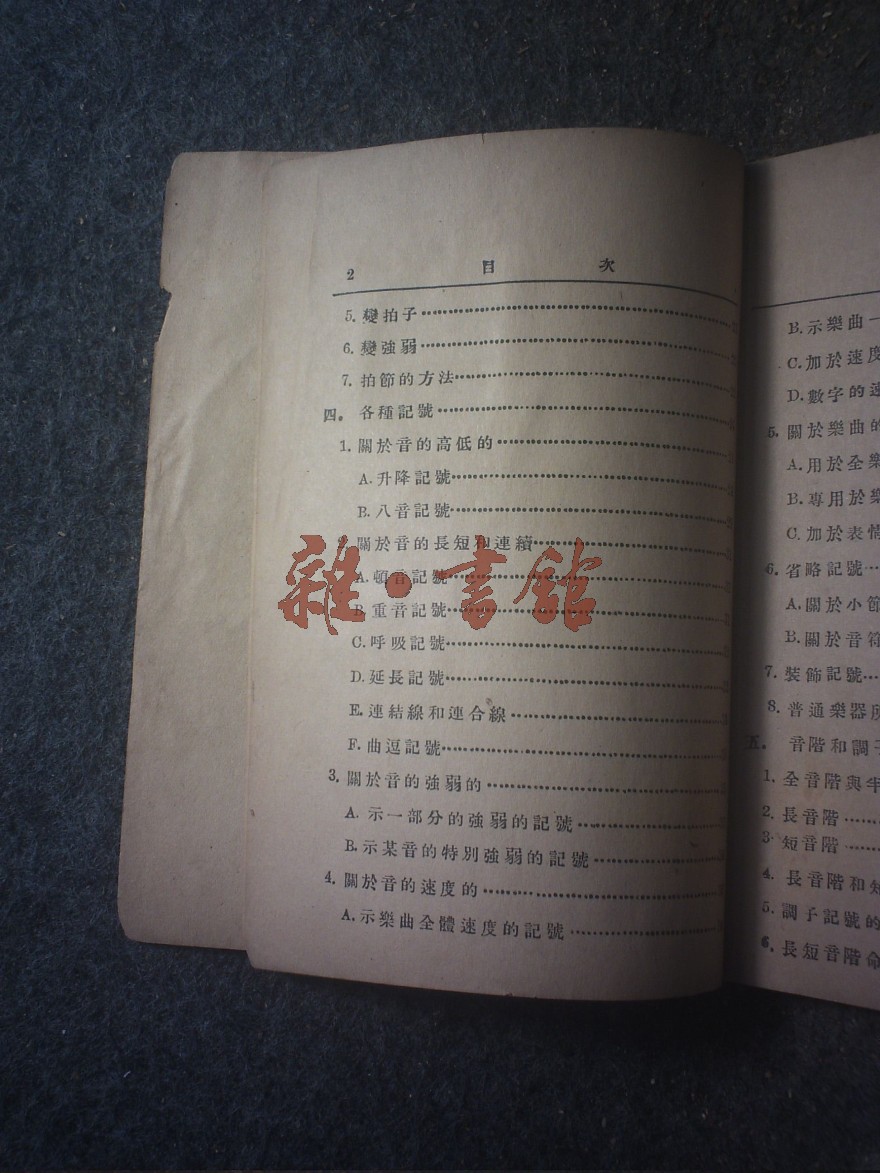 2 目 次
5. 變拍子
6. 變強弱
7. 拍節的方法
四. 各種記號
1. 關於音的高低的
A. 升降記號
B. 八音記號
關於音的長短和連續
A. 頓音記號
B. 重音記號
C. 呼吸記號
D. 延長記號
E. 連結線和連合線
F. 曲逗記號
3. 關於音的強弱的
A. 示一部分的強弱的記號
B. 示某音的特別強弱的記號
4. 關於音的速度的
A. 示樂曲全體速度的記號
雜·書館
B. 示樂曲一
C. 加於速度
D. 數字的速
5. 關於樂曲的
A. 用於全樂
B. 專用於樂
C. 加於表情
6. 省略記號
A. 關於小節
B. 關於音符
7. 裝飾記號
8. 普通樂器
五. 音階和調子
1. 全音階與半
2. 長音階
3. 短音階
4. 長音階和短
5. 調子記號的
6. 長短音階命